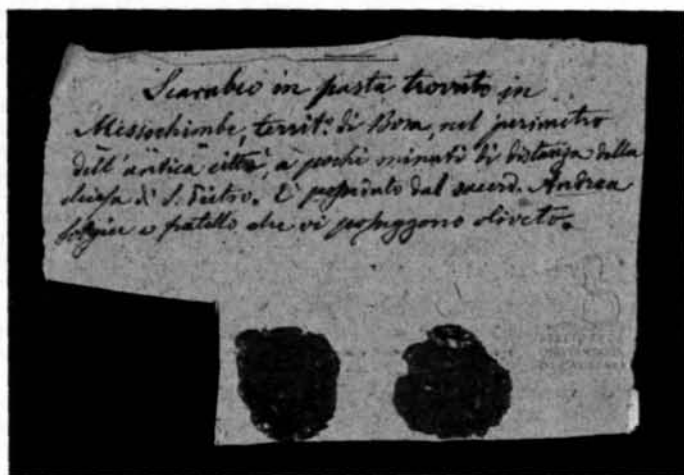 Scarabeo in pasta trovato in
Messerchimbe, territ.º di Bosa, nel perimetro
dell'antica città, a pochi minuti di distanza dalla
chiesa di S. Pietro. È posseduto dal sacerd. Andrea
e fratello che vi posseggono oliveto.